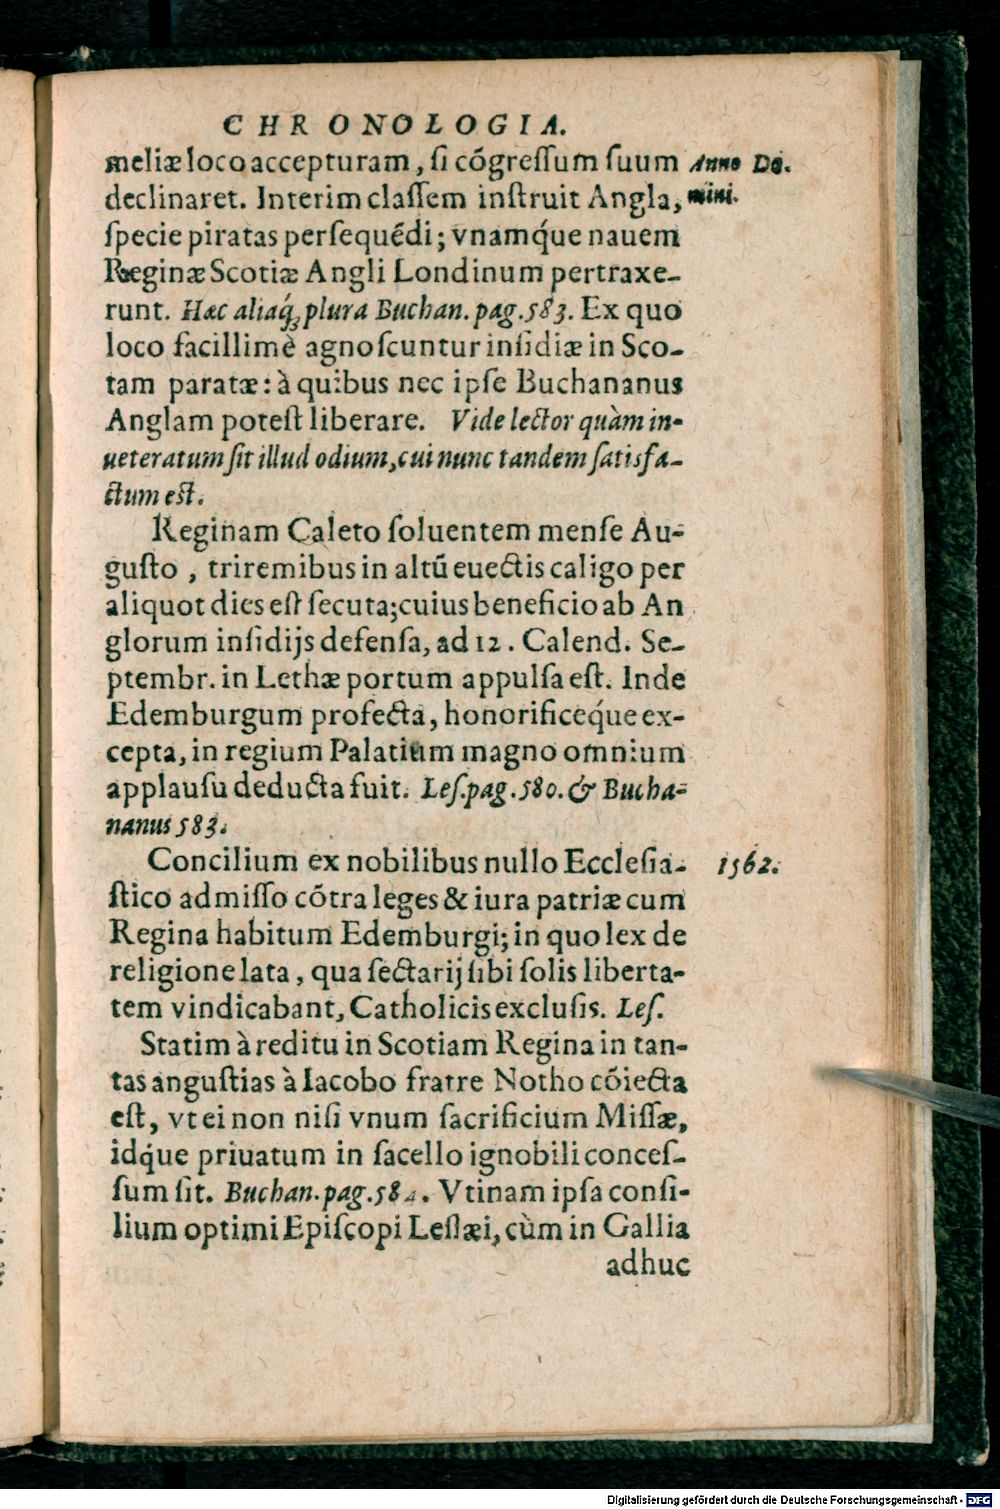 CHRONOLOGIA.
meliæ loco accepturam, ſi cõgreſſum ſuum Anno Do-
declinaret. Interim claſſem inſtruit Angla, mini.
ſpecie piratas perſequẽdi; vnamq́ue nauem
Reginæ Scotiæ Angli Londinum pertraxe-
runt. Hæc aliaq́ꝫ plura Buchan. pag. 583. Ex quo
loco facillimè agnoſcuntur inſidiæ in Sco-
tam paratæ: à quibus nec ipſe Buchananus
Anglam poteſt liberare. Vide lector quàm in-
ueteratum ſit illud odium, cui nunc tandem ſatisfa-
ctum eſt.
Reginam Caleto ſoluentem menſe Au-
guſto, triremibus in altũ euectis caligo per
aliquot dies eſt ſecuta; cuius beneficio ab An
glorum inſidijs defenſa, ad 12. Calend. Se-
ptembr. in Lethæ portum appulſa eſt. Inde
Edemburgum profecta, honorificeq́ue ex-
cepta, in regium Palatium magno omnium
applauſu deducta fuit. Leſ. pag. 580. & Bucha-
nanus 583.
Concilium ex nobilibus nullo Eccleſia- 1562.
ſtico admiſſo cõtra leges & iura patriæ cum
Regina habitum Edemburgi; in quo lex de
religione lata, qua ſectarij ſibi ſolis liberta-
tem vindicabant, Catholicis excluſis. Leſ.
Statim à reditu in Scotiam Regina in tan-
tas anguſtias à Iacobo fratre Notho cõiecta
eſt, vt ei non niſi vnum ſacrificium Miſſæ,
idq́ue priuatum in ſacello ignobili conceſ-
ſum ſit. Buchan. pag. 584. Vtinam ipſa conſi-
lium optimi Epiſcopi Leſlæi, cùm in Gallia
adhuc
Digitalisierung gefördert durch die Deutsche Forschungsgemeinschaft - DFG